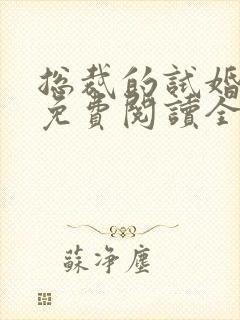 總裁的試婚
免費閱讀全
蘇淨塵